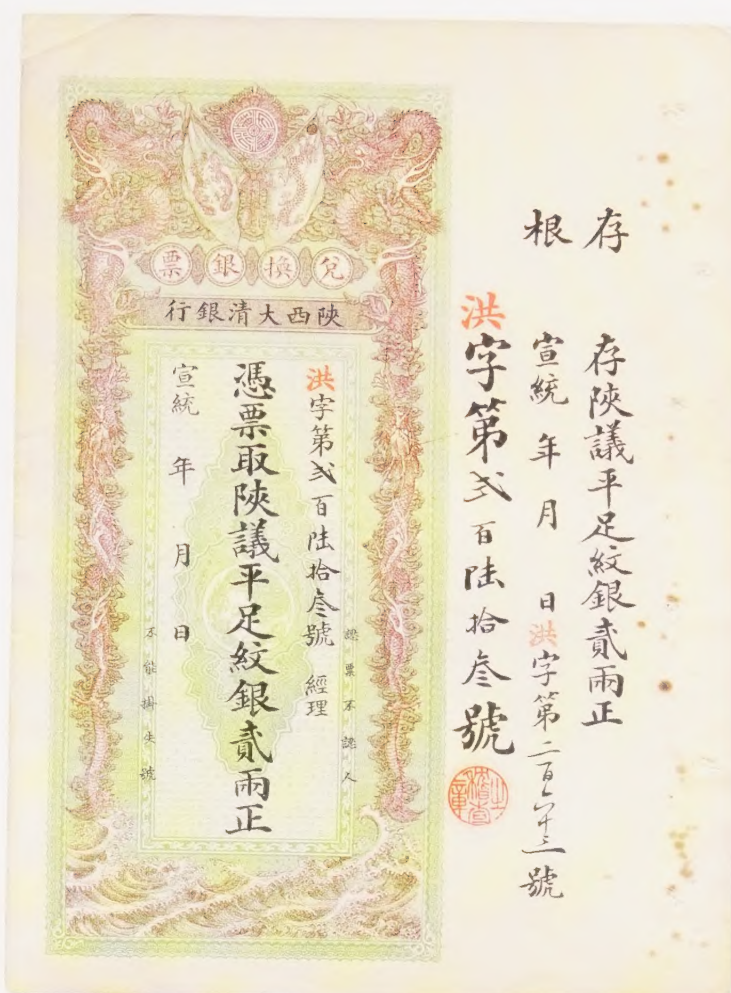 存
存陝議平足紋銀貳兩正
根
宣統 年 月 日洪字第二百六十三號
洪字第弍百陸拾叁號
兌換銀票
陝西大清銀行
認票不認人
洪字第弍百陸拾叁號 經理
憑票取陝議平足紋銀貳兩正
宣統 年 月 日
不能掛失號